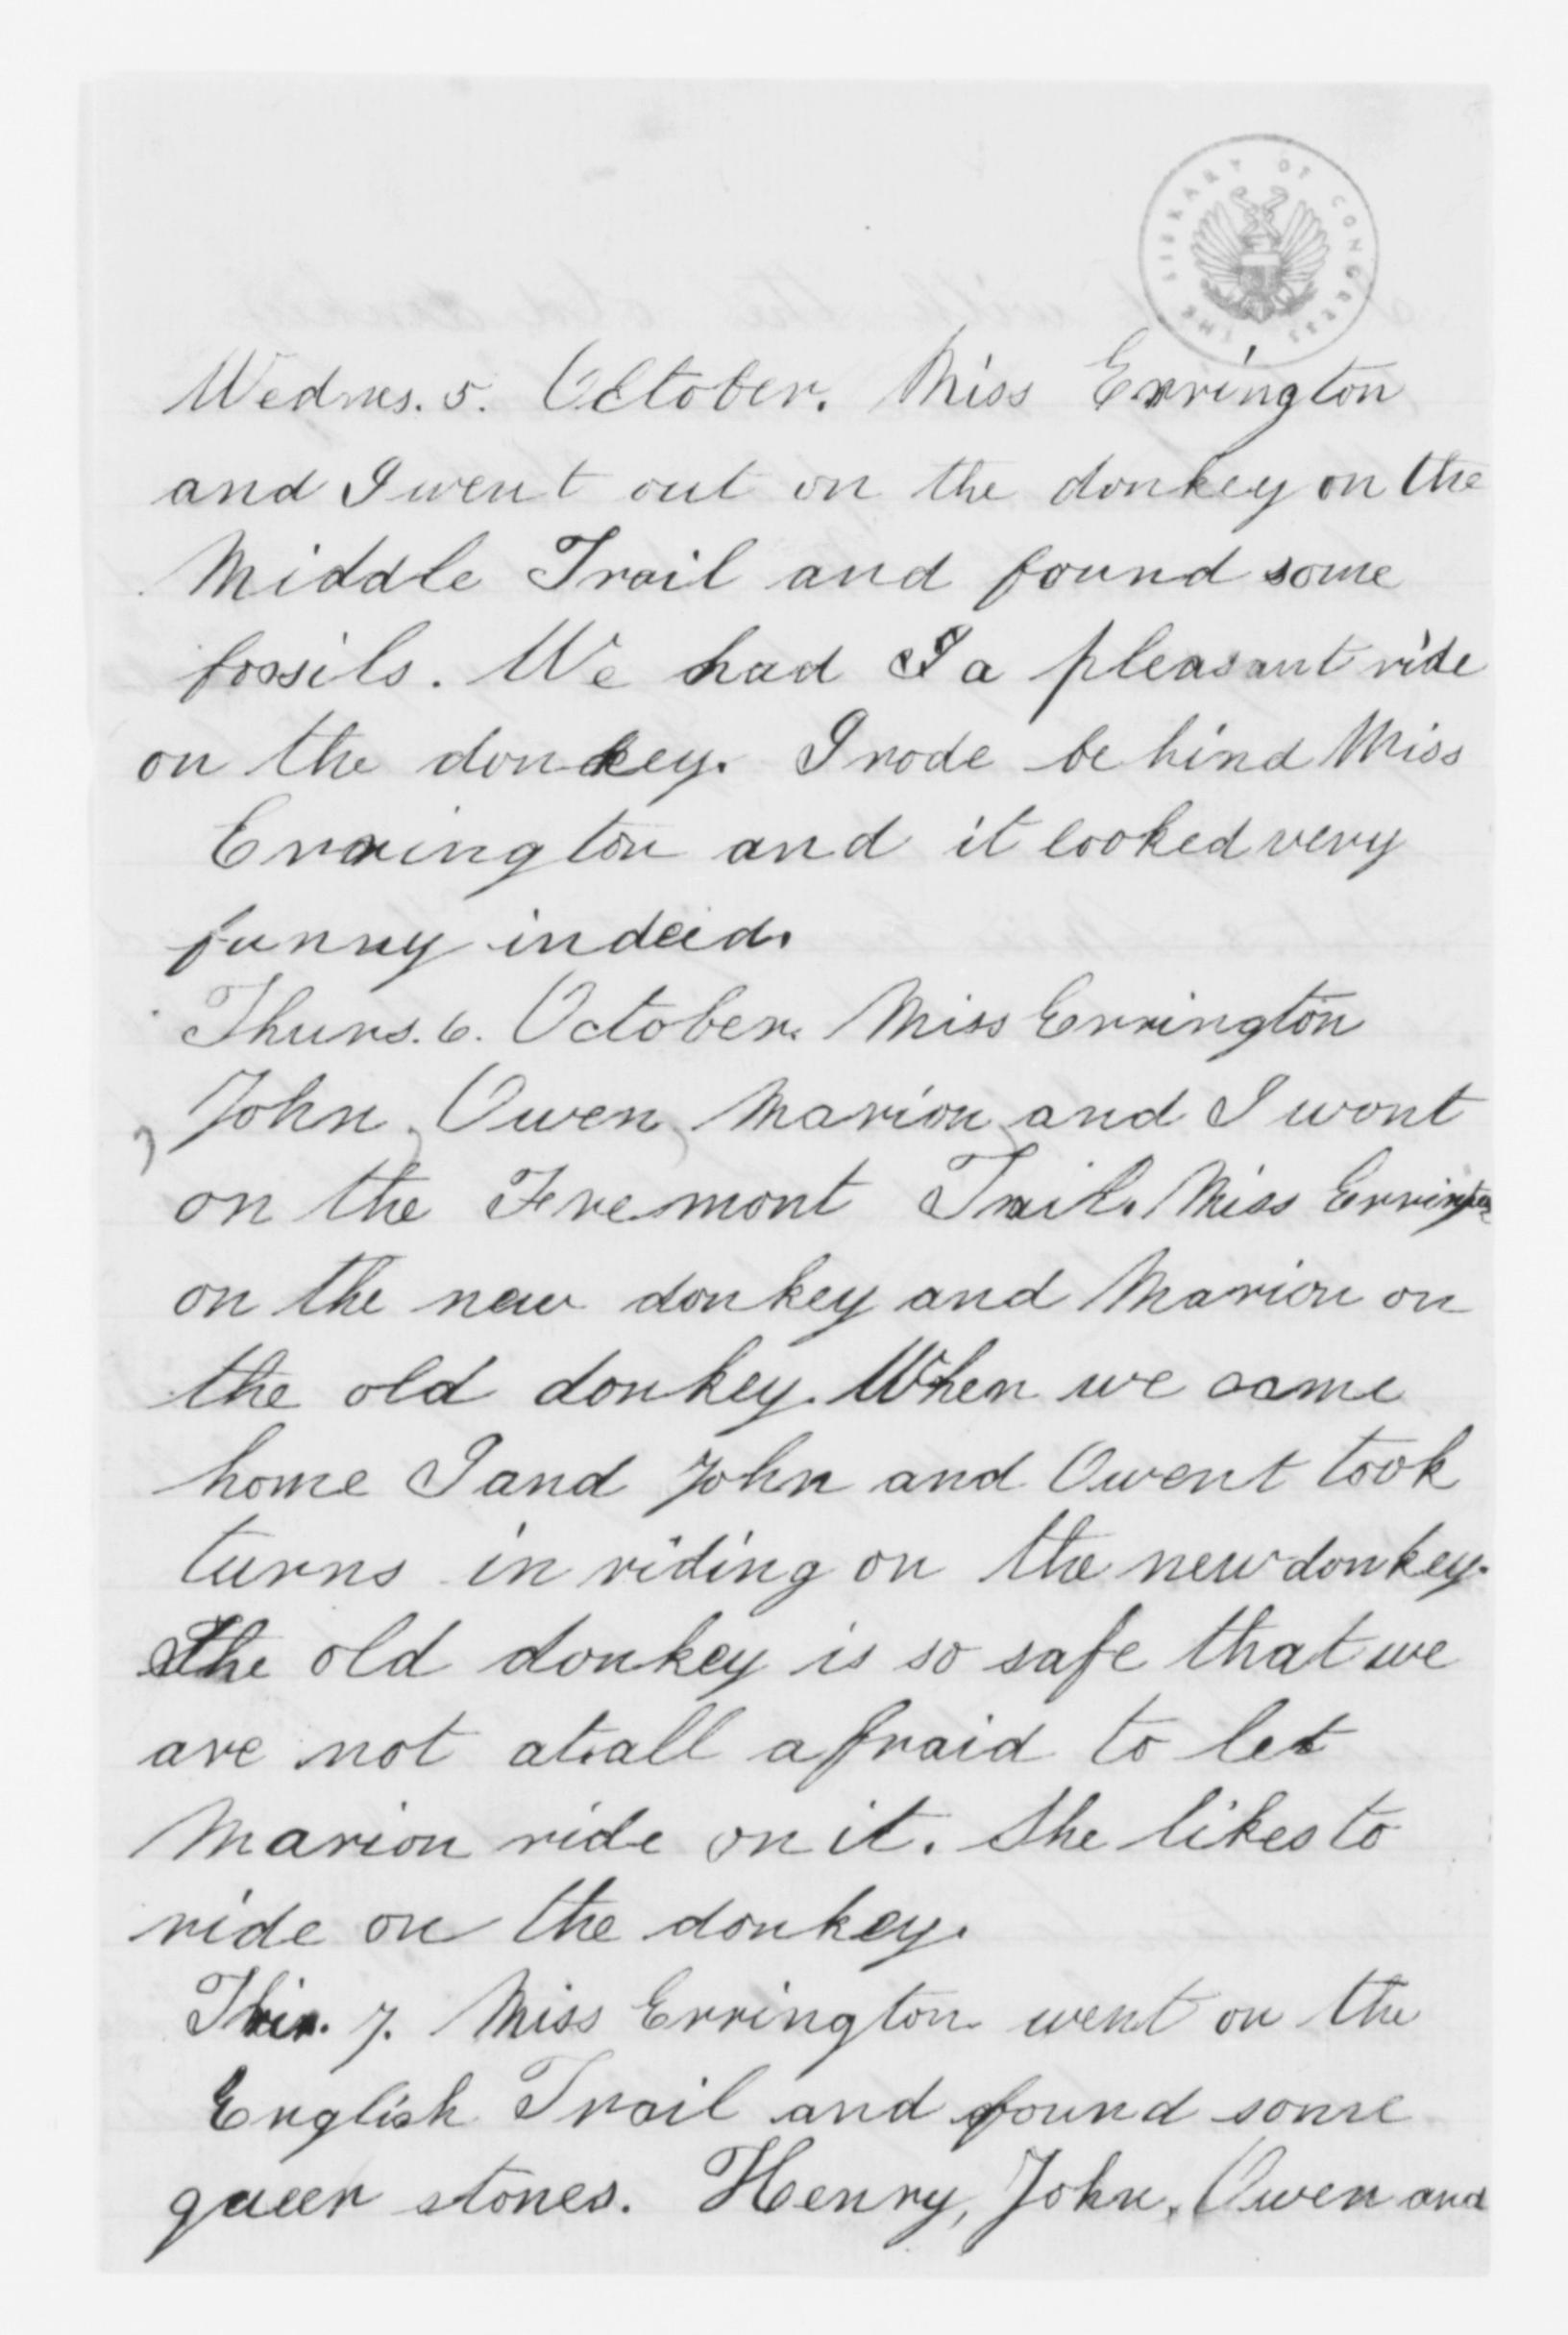 THE LIBRARY OF CONGRESS
Wednes. 5. October. Miss Errington
and I went out on the donkey on the
Middle Trail and found some
fossils. We had I a pleasant ride
on the donkey. I rode be hind Miss
Errington and it looked very
funny indeed.
Thurs. 6. October. Miss Errington
John, Owen, Marion, and I wont
on the Fremont Trail. Miss Errington
on the new donkey and Marion on
the old donkey. When we came
home I and John and Owent took
turns in riding on the new donkey.
The old donkey is so safe that we
are not at all afraid to let
Marion ride on it. She likes to
ride on the donkey.
7. Miss Errington went on the
English Trail and found some
queer stones. Henry, John, Owen and